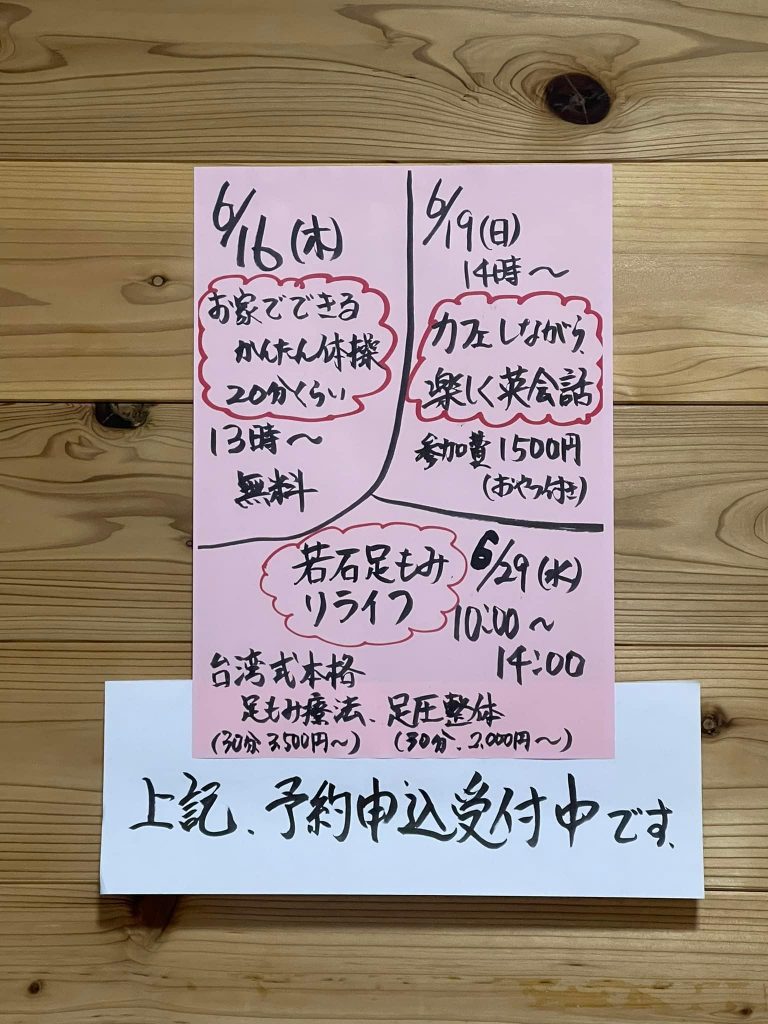 6/16(木)
お家でできる
かんたん体操
20分くらい
13時〜
無料
6/19(日)
14時〜
カフェしながら、
楽しく英会話
参加費1500円
(おやつ付き)
若石足もみ
リライフ
6/29(水)
10:00〜
14:00
台湾式本格
足もみ療法、足圧整体
(30分3,500円〜) (30分、2,000円〜)
上記、予約申込受付中です、